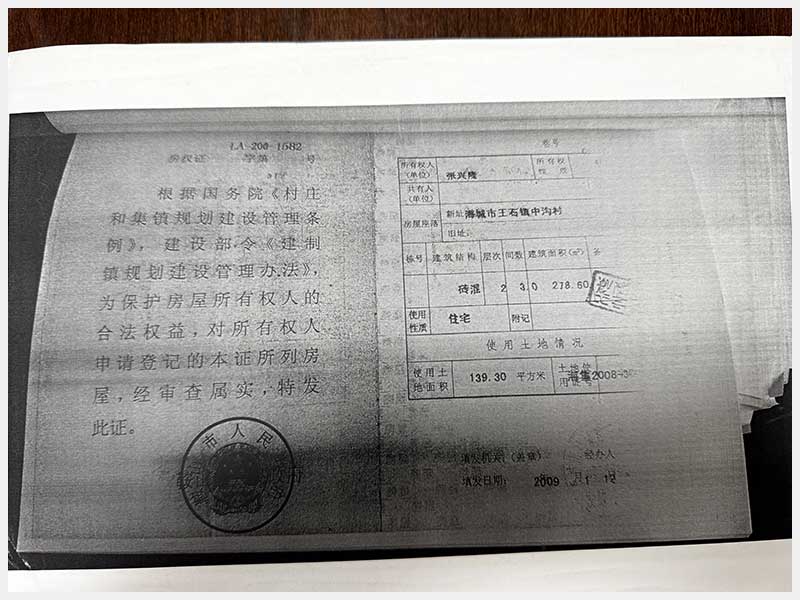 LA 200 1582
房权证 字第 号
根据国务院《村庄
和集镇规划建设管理条
例》，建设部令《建制
镇规划建设管理办法》，
为保护房屋所有权人的
合法权益，对所有权人
申请登记的本证所列房
屋，经审查属实，特发
此证。
市人民
卷号
所有权人(单位) 张兴隆 所有权
共有人(单位)
房屋座落 新址: 海城市王石镇中沟村
旧址:
栋号 建筑结构 层次 间数 建筑面积(m²)
砖混 2 3.0 278.60
使用性质 住宅 附记
使用土地情况
使用土地面积 139.30 平方米 土地使用证号 海集2008-
填发机关:(盖章) 经办人
填发日期: 2009 年 1 月 12